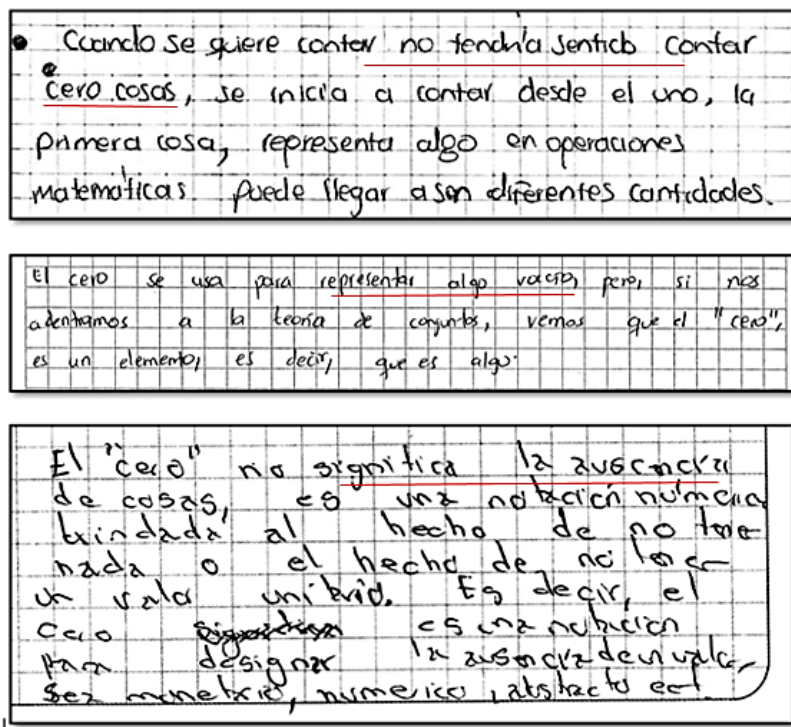 • Cuando se quiere contar no tendría sentido contar
cero cosas, se inicia a contar desde el uno, la
primera cosa, representa algo en operaciones
matemáticas puede llegar a son diferentes cantidades.
El cero se usa para representar algo vacío, pero, si nos
adentramos a la teoría de conjuntos, vemos que el "cero",
es un elemento, es decir, que es algo.
El "cero" no significa la ausencia
de cosas, es una notación númerica
brindada al hecho de no tene
nada o el hecho de no tener
un valor unitario. Es decir, el
cero es una notación
para designar la ausencia de un valor,
sea monetario, numerico, abstracto ect.